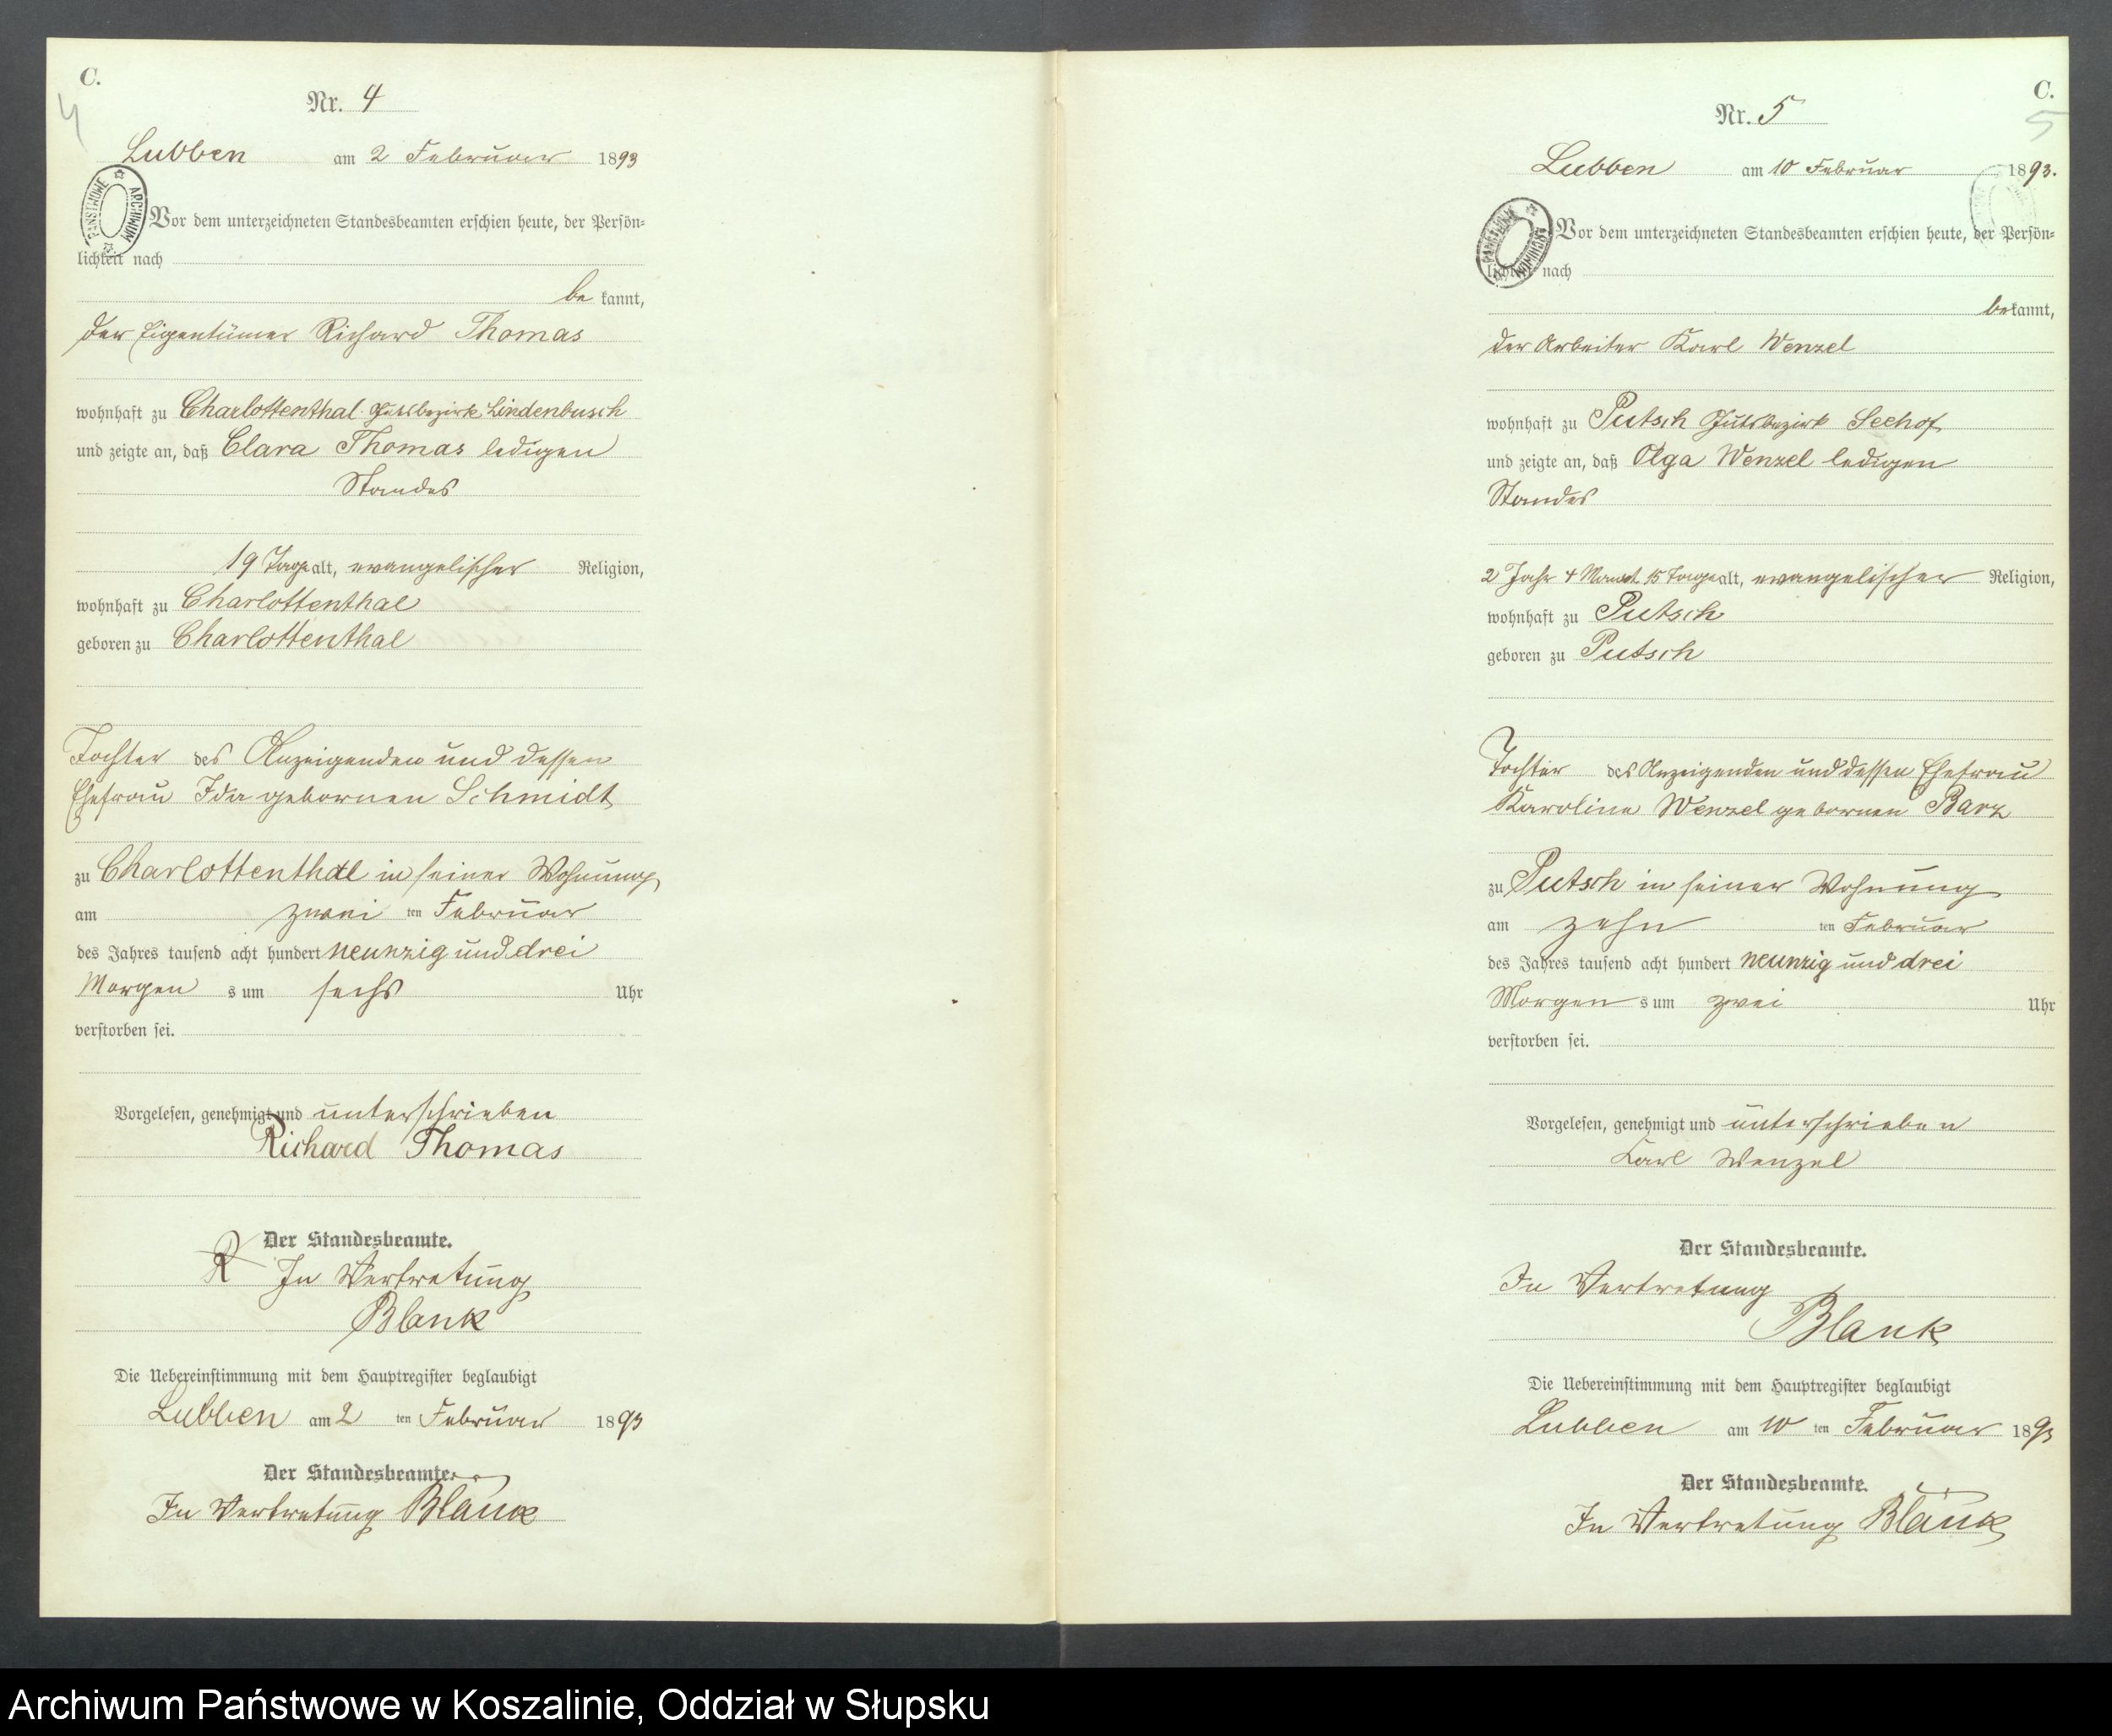 C.
4
Nr. 4
Lubben am 2 Februar 1893
PAŃSTWOWE ARCHIWUM
Vor dem unterzeichneten Standesbeamten erschien heute, der Persön-
lichkeit nach
be kannt,
der Eigentümer Richard Thomas
wohnhaft zu Charlottenthal Gutsbezirk Lindenbusch
und zeigte an, daß Clara Thomas ledigen
Standes
19 Tage alt, evangelischer Religion,
wohnhaft zu Charlottenthal
geboren zu Charlottenthal
Tochter des Anzeigenden und dessen
Ehefrau Ida gebornen Schmidt
zu Charlottenthal in seiner Wohnung
am zwei ten Februar
des Jahres tausend acht hundert neunzig und drei
Morgen s um sechs Uhr
verstorben sei.
Vorgelesen, genehmigt und unterschrieben
Richard Thomas
Der Standesbeamte.
In Vertretung
Blank
Die Uebereinstimmung mit dem Hauptregister beglaubigt
Lubben am 2 ten Februar 1893
Der Standesbeamte.
In Vertretung Blank
C.
5
Nr. 5
Lubben am 10 Februar 1893.
PAŃSTWOWE ARCHIWUM
Vor dem unterzeichneten Standesbeamten erschien heute, der Persön-
lichkeit nach
bekannt,
der Arbeiter Karl Wenzel
wohnhaft zu Putsch Gutsbezirk Seehof
und zeigte an, daß Olga Wenzel ledigen
Standes
2 Jahr 4 Monat 15 Tage alt, evangelischer Religion,
wohnhaft zu Putsch
geboren zu Putsch
Tochter des Anzeigenden und dessen Ehefrau
Karoline Wenzel gebornen Barz
zu Putsch in seiner Wohnung
am zehn ten Februar
des Jahres tausend acht hundert neunzig und drei
Morgen s um zwei Uhr
verstorben sei.
Vorgelesen, genehmigt und unterschrieben
Karl Wenzel
Der Standesbeamte.
In Vertretung
Blank
Die Uebereinstimmung mit dem Hauptregister beglaubigt
Lubben am 10 ten Februar 1893
Der Standesbeamte.
In Vertretung Blank
Archiwum Państwowe w Koszalinie, Oddział w Słupsku